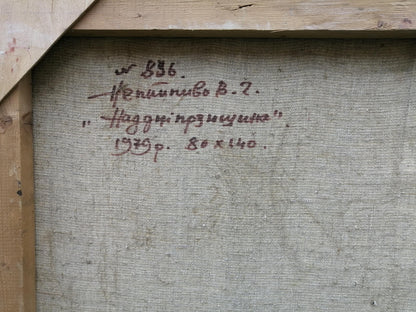 № 896.
Непийпиво В. І.
„Наддніпрянщина".
1979 р. 80 х 140.